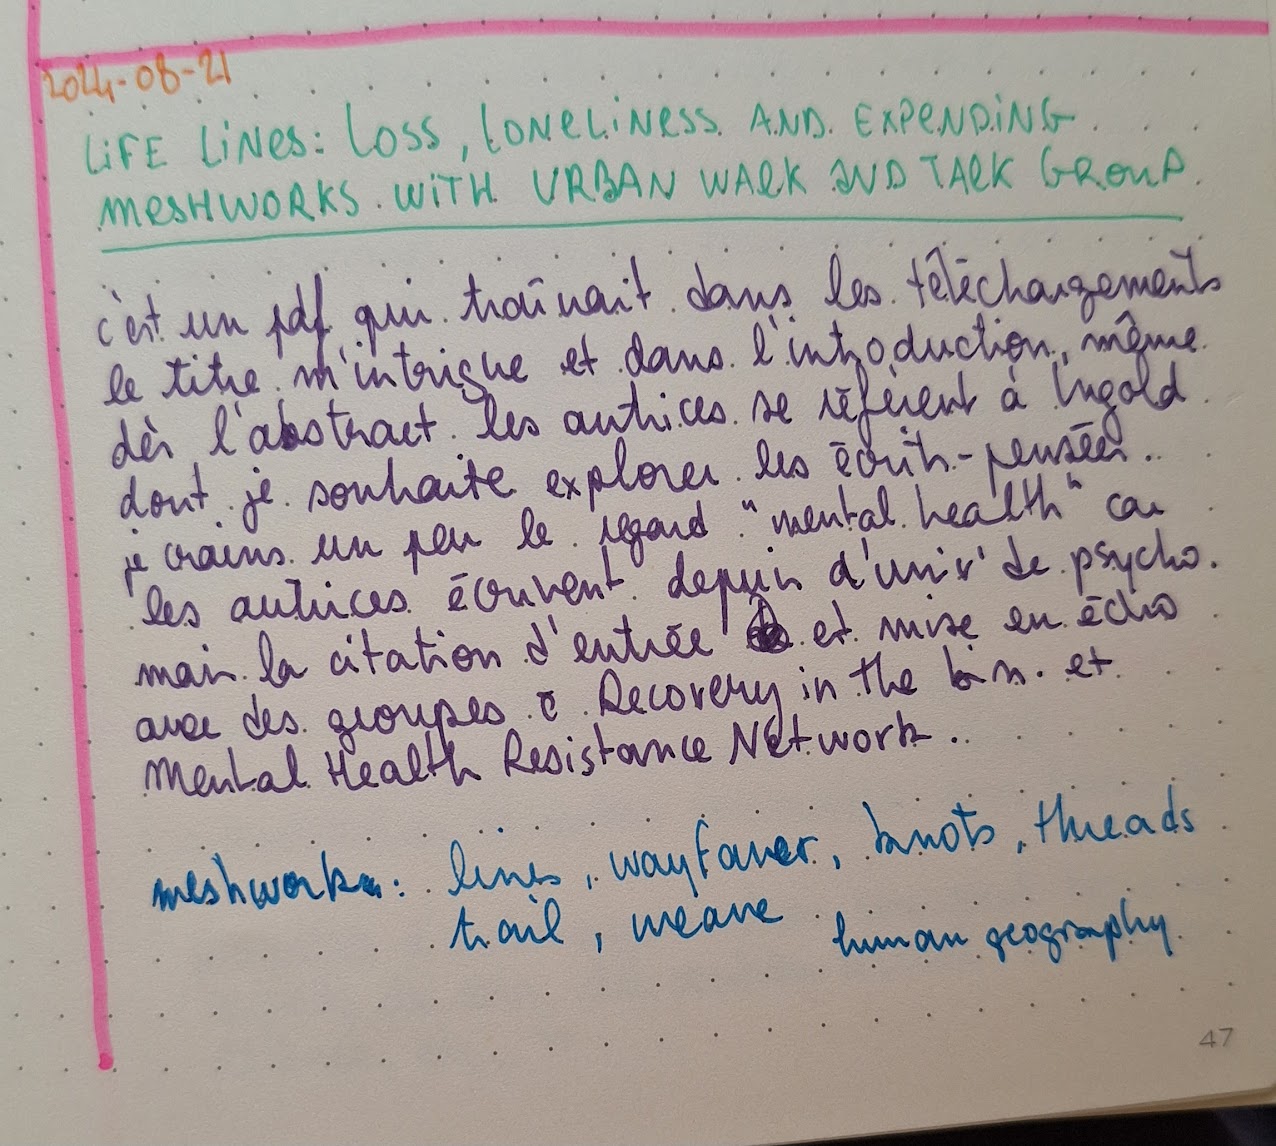 2024-08-21
LIFE LINES: LOSS, LONELINESS AND EXPENDING
MESHWORKS WITH URBAN WALK AND TALK GROUP.
c'est un pdf qui traînait dans les téléchargements
le titre m'intrigue et dans l'introduction, même
dès l'abstract les autrices se réfèrent à Ingold
dont je souhaite explorer les écrits-pensées.
je crains un peu le regard "mental health" car
les autrices écrivent depuis d'univ' de psycho.
mais la citation d'entrée et mise en écho
avec des groupes c Recovery in the bin. et
Mental Health Resistance Network..
meshwork: lines, wayfarer, knots, threads
trail, weave
human geography
47